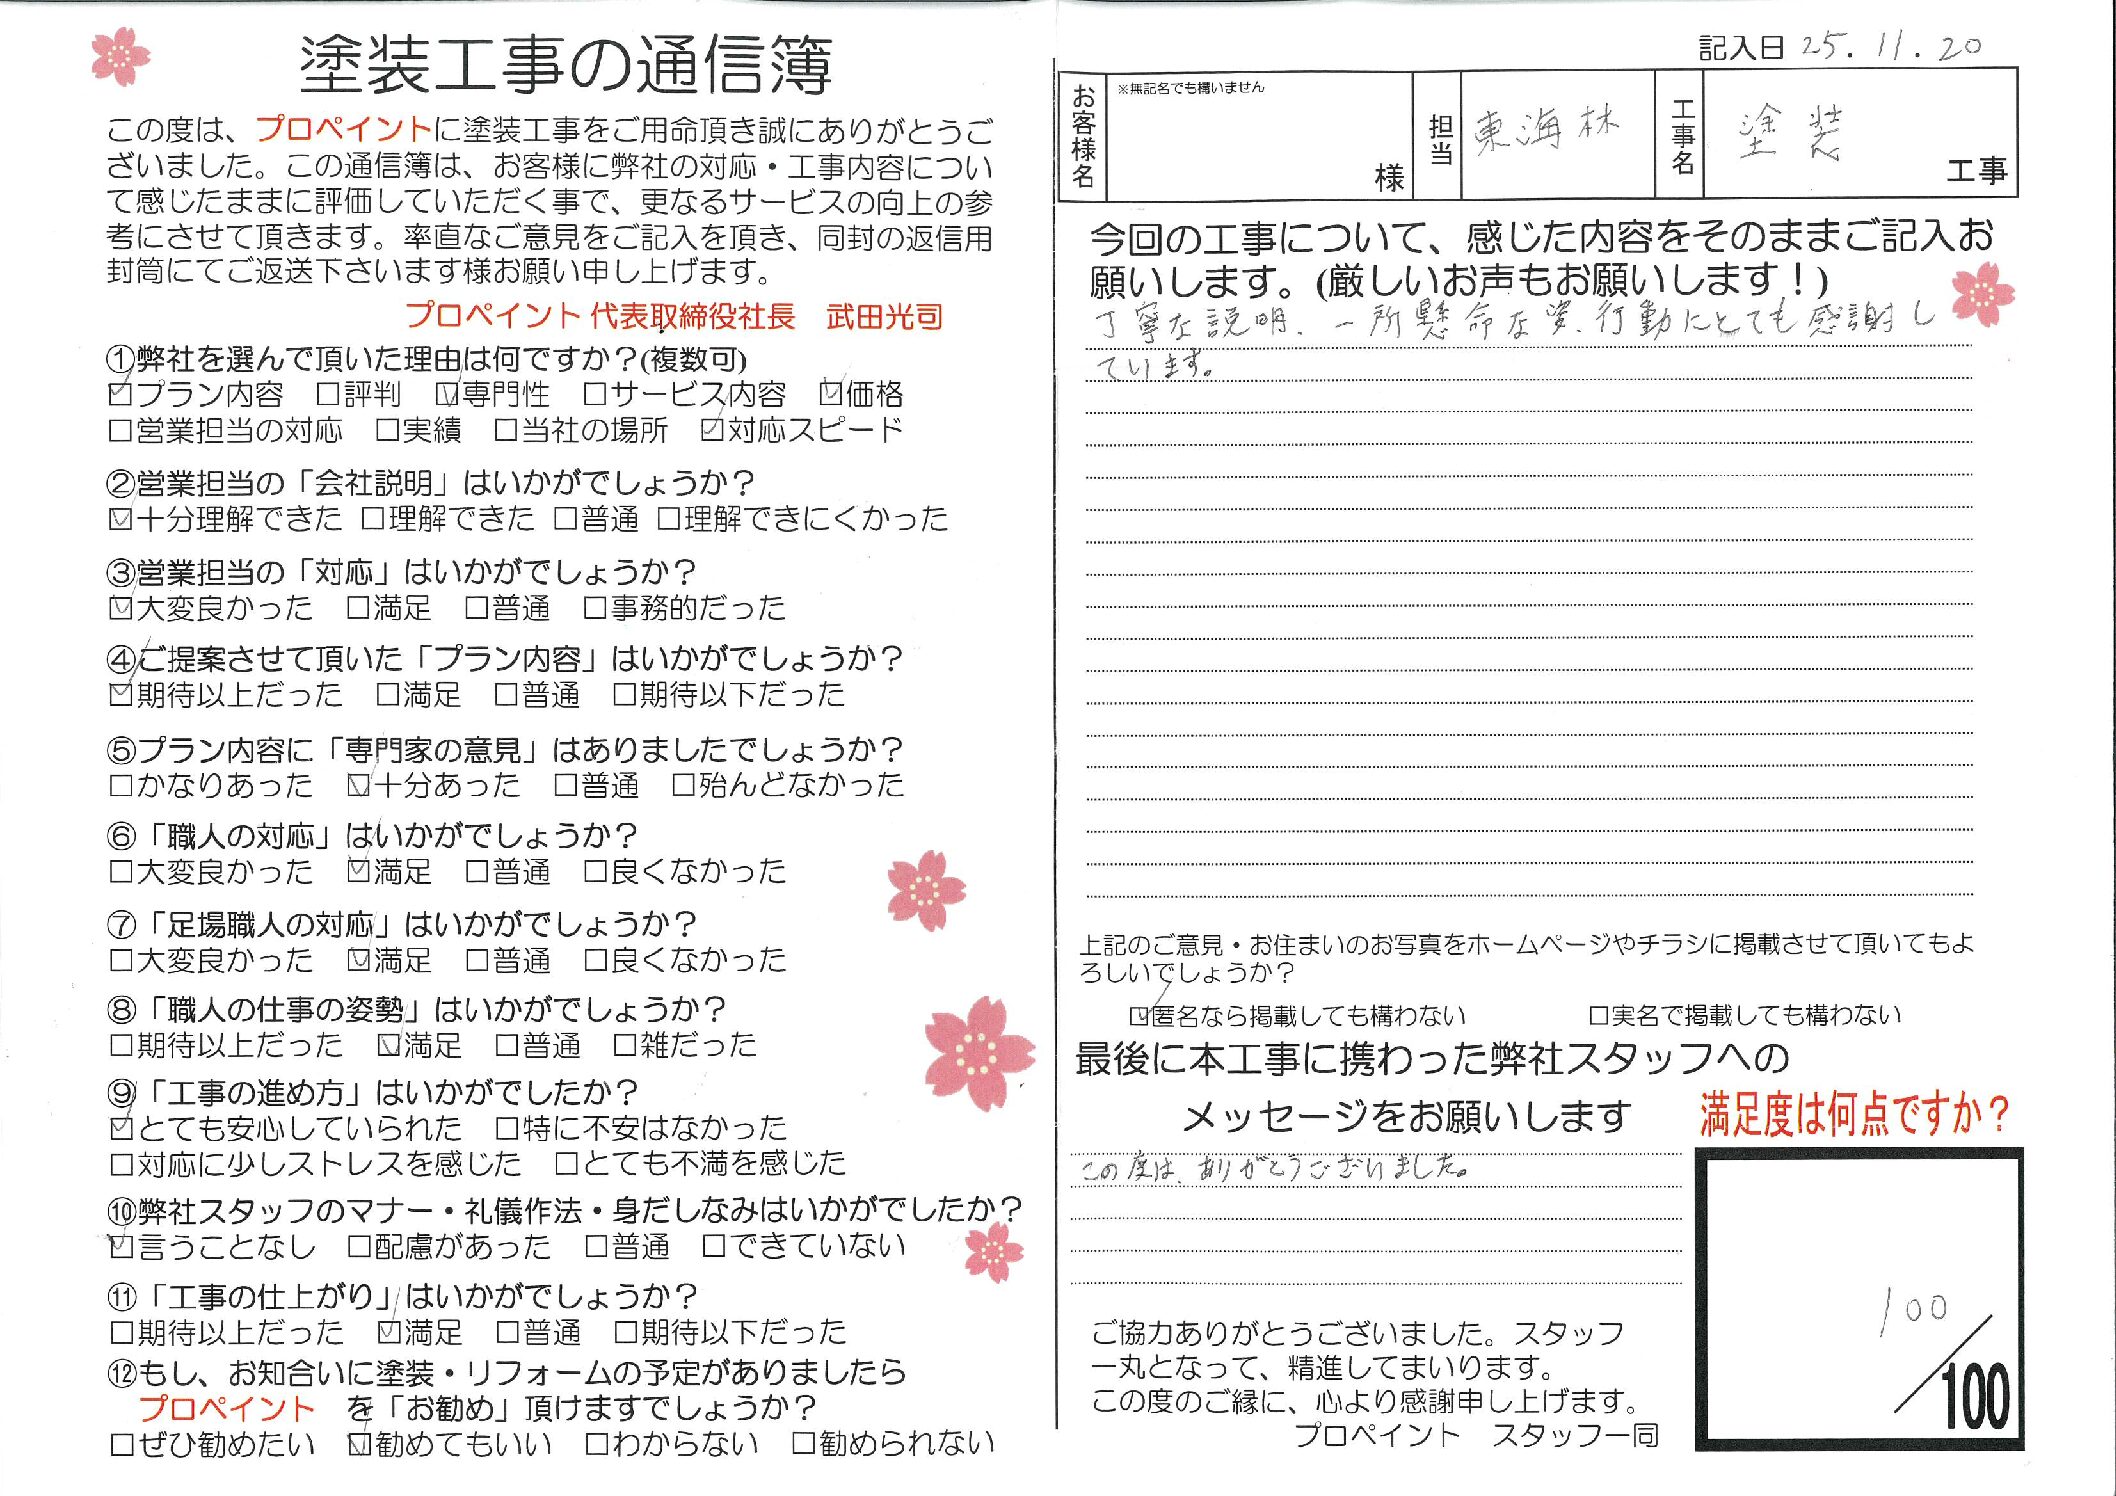 塗装工事の通信簿
この度は、プロペイントに塗装工事をご用命頂き誠にありがとうご
ざいました。この通信簿は、お客様に弊社の対応・工事内容につい
て感じたままに評価していただく事で、更なるサービスの向上の参
考にさせて頂きます。率直なご意見をご記入を頂き、同封の返信用
封筒にてご返送下さいます様お願い申し上げます。
プロペイント 代表取締役社長　武田光司
①弊社を選んで頂いた理由は何ですか？(複数可)
☑プラン内容　□評判　☑専門性　□サービス内容　☑価格
□営業担当の対応　□実績　□当社の場所　☑対応スピード
②営業担当の「会社説明」はいかがでしょうか？
☑十分理解できた □理解できた □普通 □理解できにくかった
③営業担当の「対応」はいかがでしょうか？
☑大変良かった　□満足　□普通　□事務的だった
④ご提案させて頂いた「プラン内容」はいかがでしょうか？
☑期待以上だった　□満足　□普通　□期待以下だった
⑤プラン内容に「専門家の意見」はありましたでしょうか？
□かなりあった　☑十分あった　□普通　□殆んどなかった
⑥「職人の対応」はいかがでしょうか？
□大変良かった　☑満足　□普通　□良くなかった
⑦「足場職人の対応」はいかがでしょうか？
□大変良かった　☑満足　□普通　□良くなかった
⑧「職人の仕事の姿勢」はいかがでしょうか？
□期待以上だった　☑満足　□普通　□雑だった
⑨「工事の進め方」はいかがでしたか？
☑とても安心していられた　□特に不安はなかった
□対応に少しストレスを感じた　□とても不満を感じた
⑩弊社スタッフのマナー・礼儀作法・身だしなみはいかがでしたか？
☑言うことなし　□配慮があった　□普通　□できていない
⑪「工事の仕上がり」はいかがでしょうか？
□期待以上だった　☑満足　□普通　□期待以下だった
⑫もし、お知合いに塗装・リフォームの予定がありましたら
プロペイント　を「お勧め」頂けますでしょうか？
□ぜひ勧めたい　☑勧めてもいい　□わからない　□勧められない
記入日 25.11.20
お客様名　※無記名でも構いません　様　担当　東海林　工事名　塗装　工事
今回の工事について、感じた内容をそのままご記入お
願いします。(厳しいお声もお願いします！)
丁寧な説明、一所懸命な姿、行動にとても感謝し
ています。
上記のご意見・お住まいのお写真をホームページやチラシに掲載させて頂いてもよ
ろしいでしょうか？
☑匿名なら掲載しても構わない　□実名で掲載しても構わない
最後に本工事に携わった弊社スタッフへの
メッセージをお願いします
満足度は何点ですか？
この度は、ありがとうございました。
100
/100
ご協力ありがとうございました。スタッフ
一丸となって、精進してまいります。
この度のご縁に、心より感謝申し上げます。
プロペイント　スタッフ一同